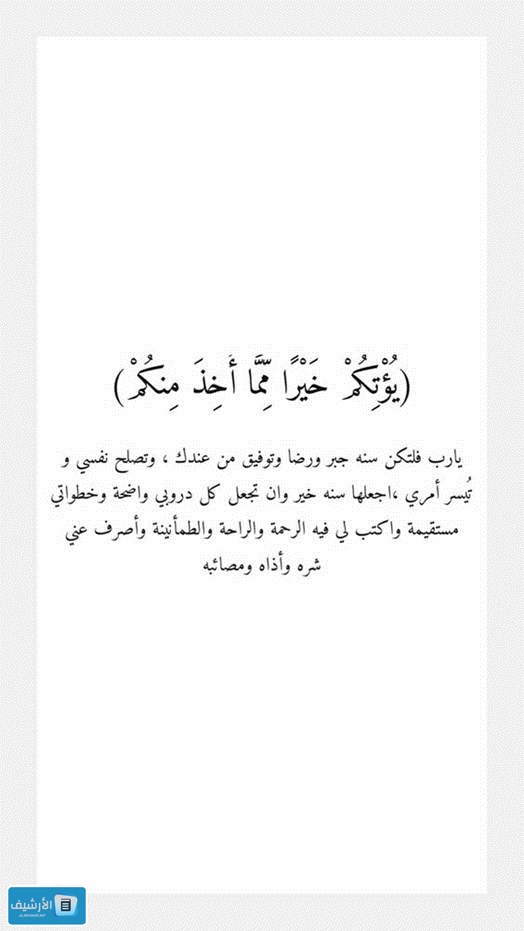 (يُؤْتِكُمْ خَيْرًا مِّمَّا أُخِذَ مِنكُمْ)
يارب فلتكن سنه جبر ورضا وتوفيق من عندك ، وتصلح نفسي و
تُيسر أمري ،اجعلها سنه خير وان تجعل كل دروبي واضحة وخطواتي
مستقيمة واكتب لي فيه الرحمة والراحة والطمأنينة وأصرف عني
شره وأذاه ومصائبه
الأرشيف